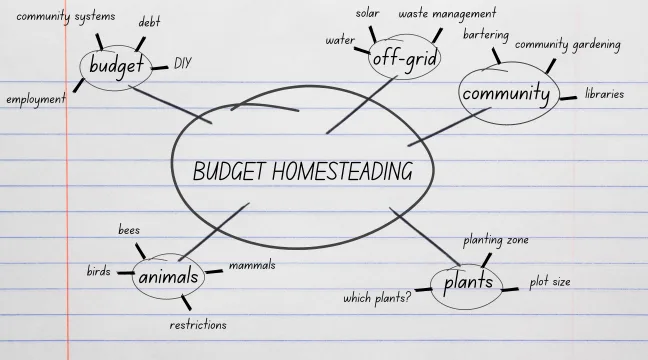 community systems
debt
budget
DIY
employment
solar
waste management
water
off-grid
bartering
community gardening
community
libraries
BUDGET HOMESTEADING
bees
birds
animals
mammals
restrictions
planting zone
which plants?
plants
plot size